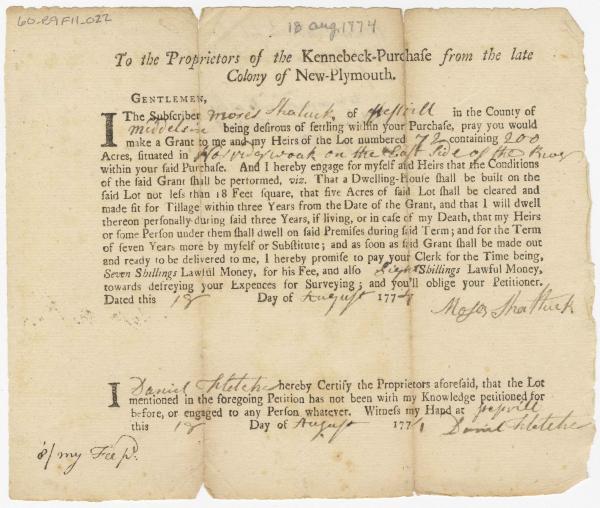 60-29F11-022
18 aug. 1774
To the Proprietors of the Kennebeck-Purchaſe from the late
Colony of New-Plymouth.
GENTLEMEN,
I The Subſcriber Moses Shatuck of in the County of
Middelsix being deſirous of ſettling within your Purchaſe, pray you would
make a Grant to me and my Heirs of the Lot numbered 72 containing 200
Acres, situated in on the East Side of the River
within your ſaid Purchaſe. And I hereby engage for myſelf and Heirs that the Conditions
of the ſaid Grant ſhall be performed, viz. That a Dwelling-Houſe ſhall be built on the
ſaid Lot not leſs than 18 Feet ſquare, that five Acres of ſaid Lot ſhall be cleared and
made fit for Tillage within three Years from the Date of the Grant, and that I will dwell
thereon perſonally during ſaid three Years, if living, or in caſe of my Death, that my Heirs
or ſome Perſon under them ſhall dwell on ſaid Premiſes during ſaid Term; and for the Term
of ſeven Years more by myſelf or Subſtitute; and as ſoon as ſaid Grant ſhall be made out
and ready to be delivered to me, I hereby promiſe to pay your Clerk for the Time being,
Seven Shillings Lawful Money, for his Fee, and alſo Eight Shillings Lawful Money,
towards defreying your Expences for Surveying; and you'll oblige your Petitioner.
Dated this 18 Day of August 1774
Moses Shattuck
I Daniel Fletcher hereby Certify the Proprietors aforeſaid, that the Lot
mentioned in the foregoing Petition has not been with my Knowledge petitioned for
before, or engaged to any Perſon whatever. Witneſs my Hand at
this 18 Day of August 1774
Daniel Fletcher
8/ my Fee pd.